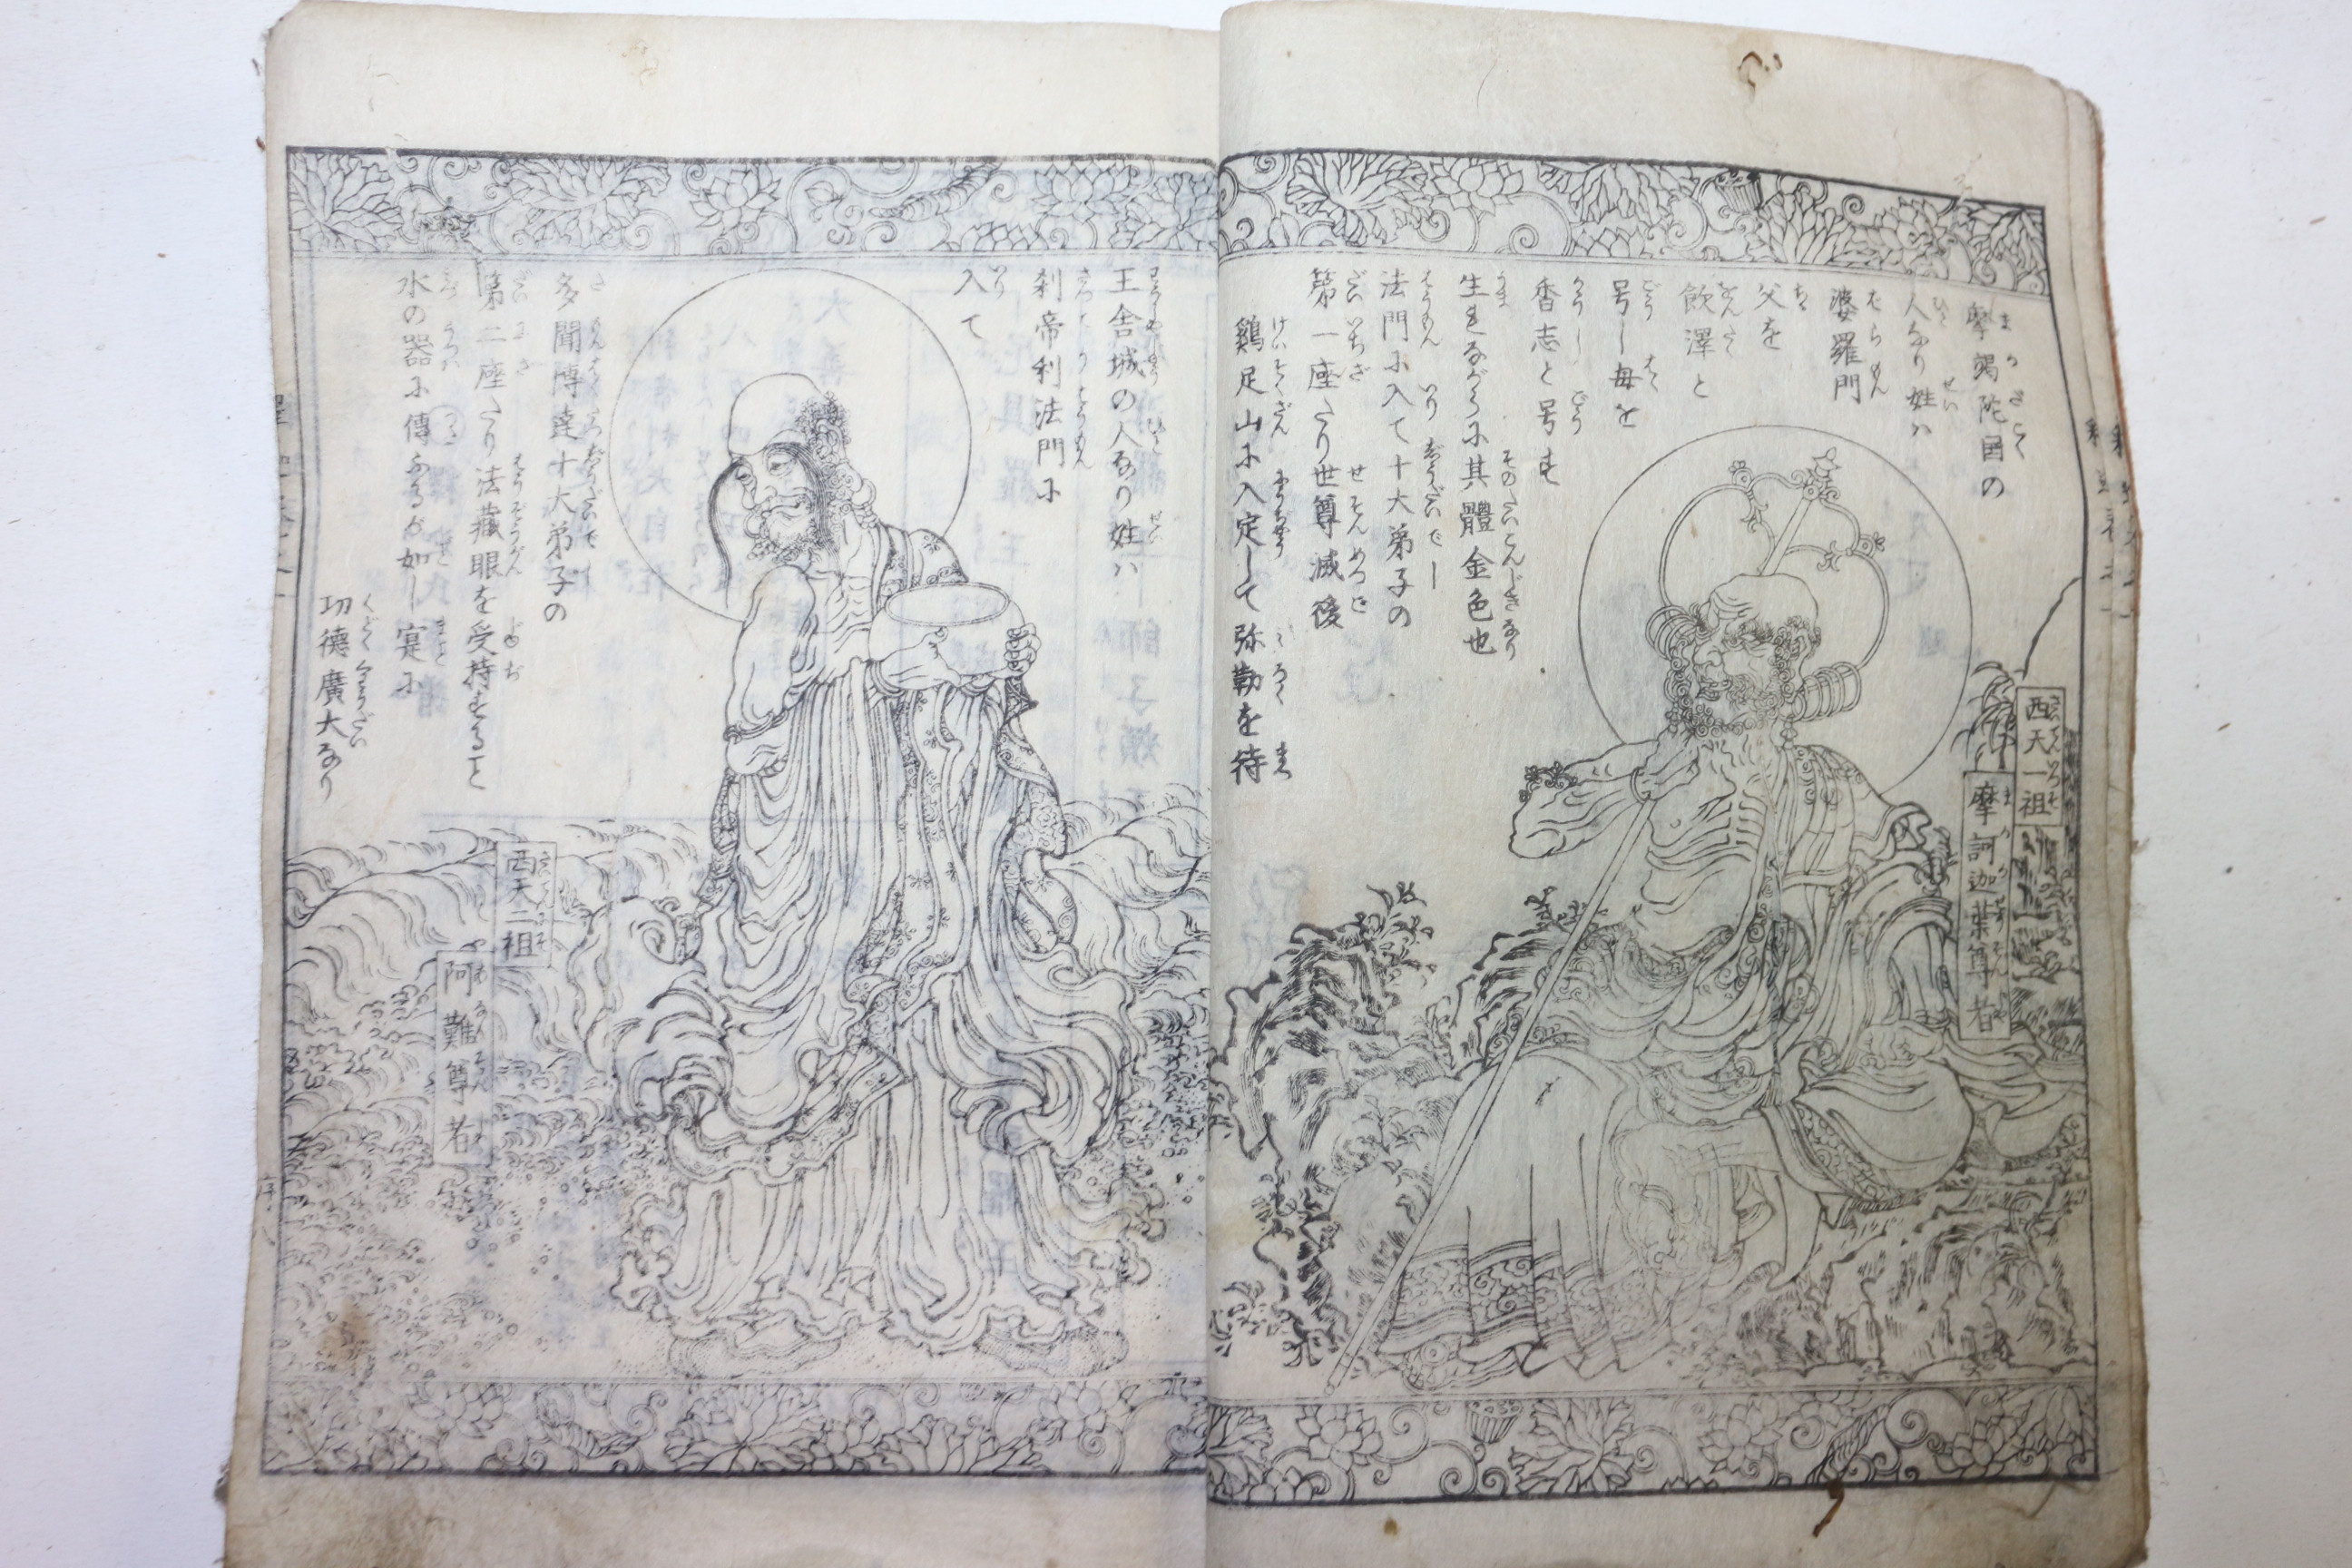 西天一祖
摩訶迦葉尊者
摩竭陀国の
人なり姓ハ
婆羅門
父を
飲澤と
号し母を
香志と号す
生れながらに其體金色也
法門に入て十大弟子の
第一座たり世尊滅後
鷄足山に入定して弥勒を待
王舎城の人なり姓ハ
刹帝利法門に
入て
多聞博達十大弟子の
第二座たり法藏眼を受持すること
水の器に傳ふるが如し寔に
功徳廣大なり
西天二祖
阿難尊者